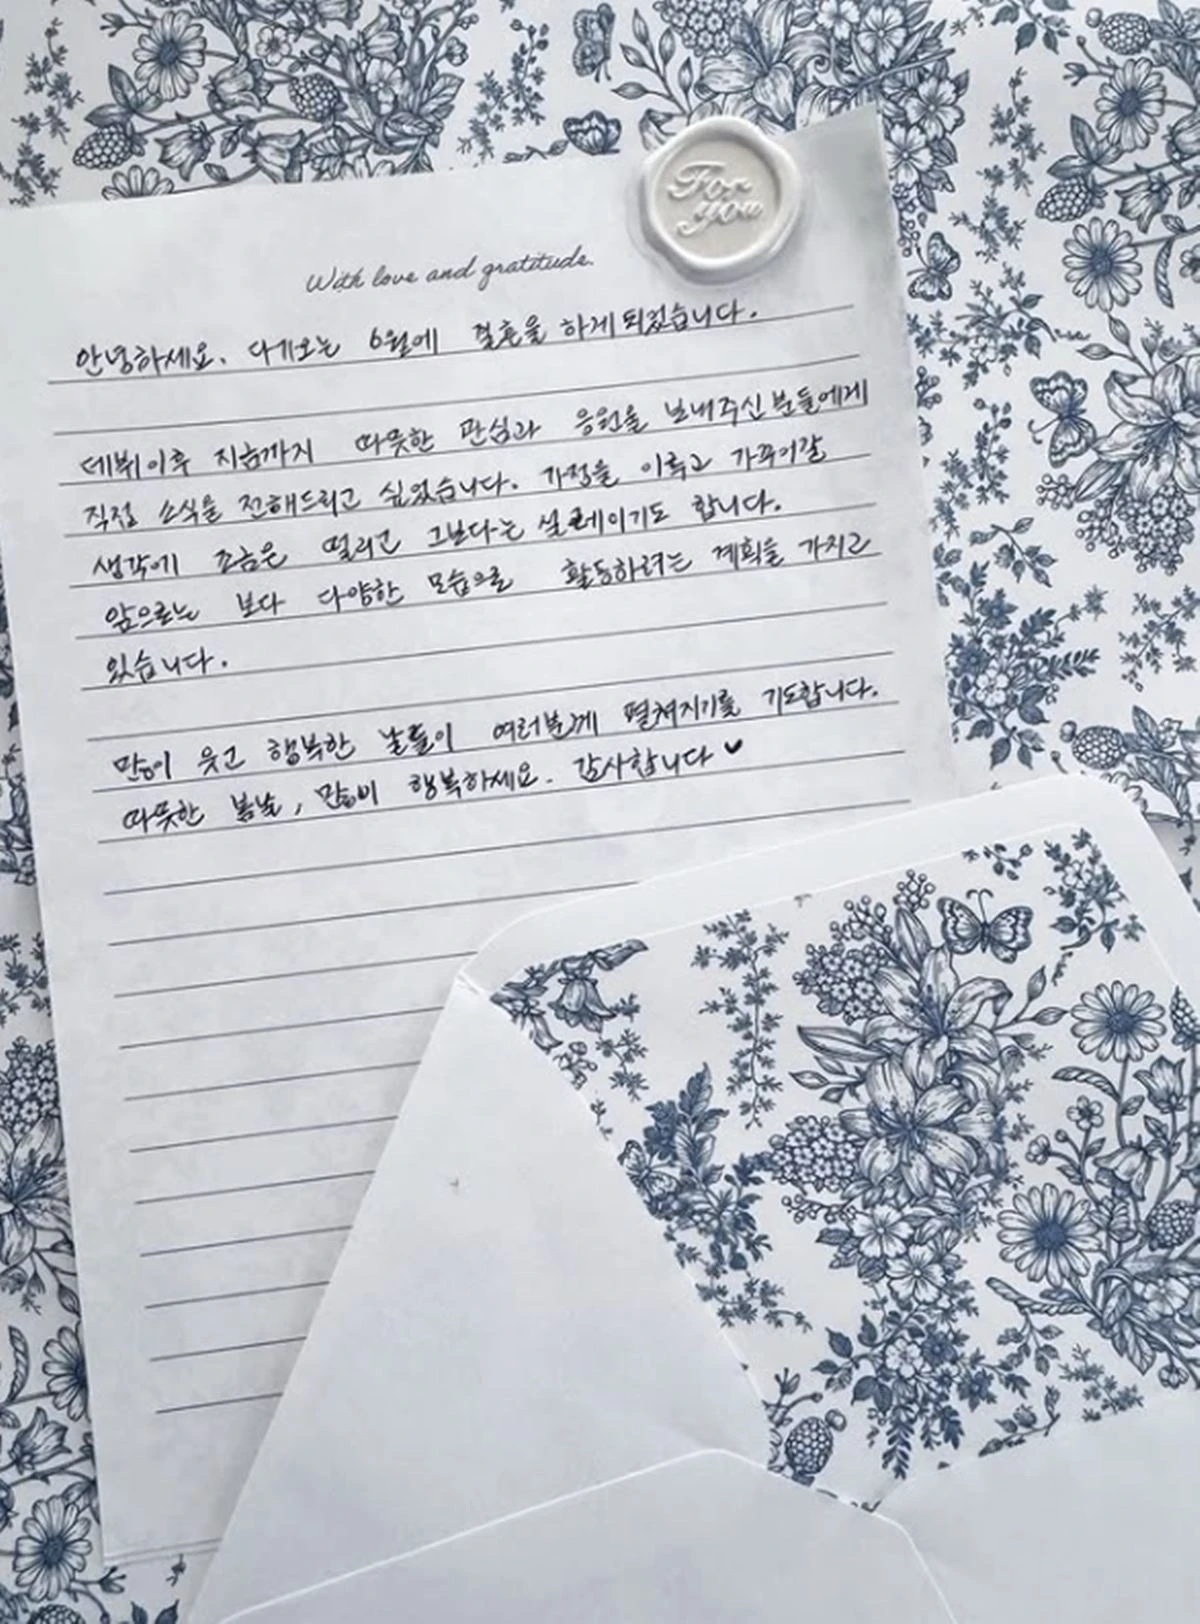 For
you
With love and gratitude.
안녕하세요. 다가오는 6월에 결혼을 하게되었습니다.
데뷔이후 지금까지 따뜻한 관심과 응원을 보내주신분들에게
직접 소식을 전해드리고 싶었습니다. 가정을 이루고 가꾸어갈
생각에 조금은 떨리고 그보다는 설레이기도 합니다.
앞으로는 보다 다양한 모습으로 활동하려는 계획을 가지고
있습니다.
많이 웃고 행복한 날들이 여러분께 펼쳐지기를 기도합니다.
따뜻한 봄날, 많이 행복하세요. 감사합니다♥